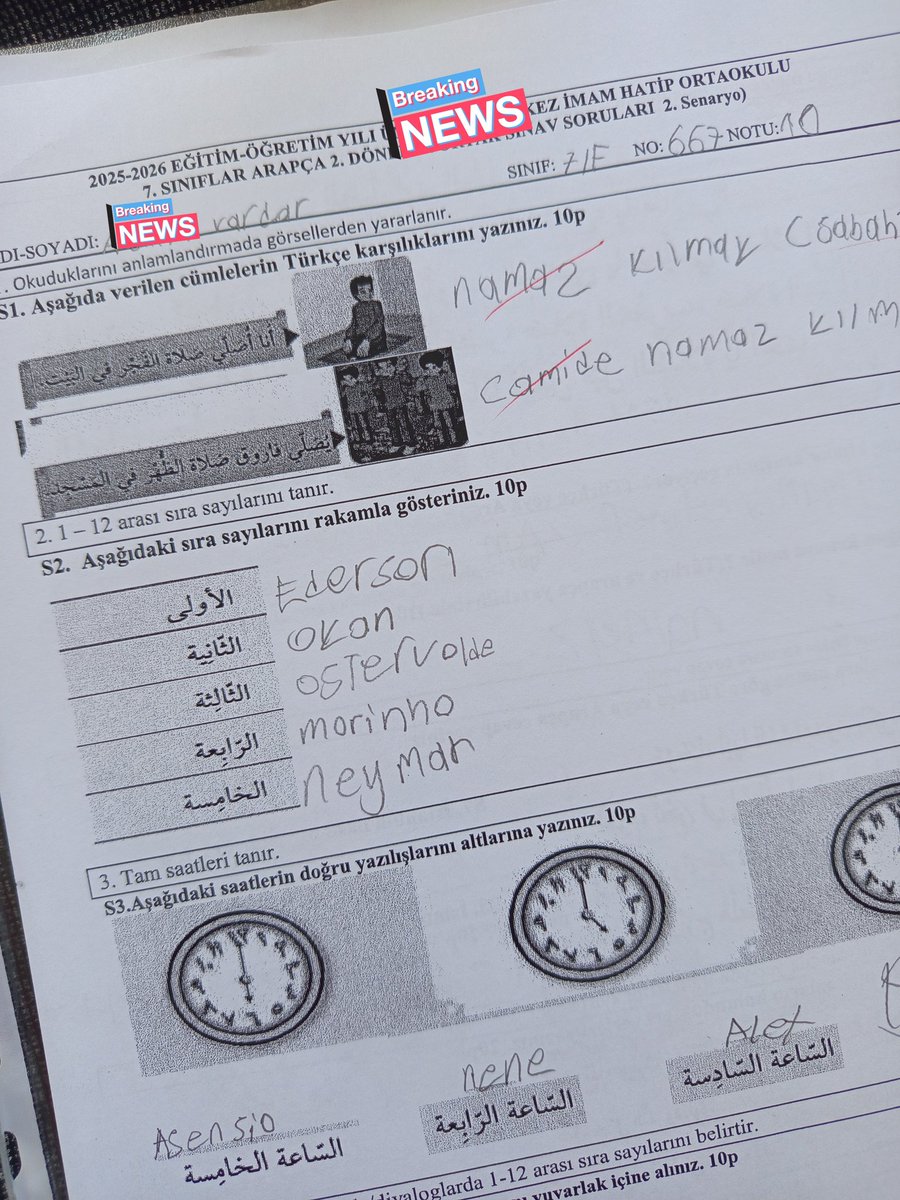 Breaking
NEWS
2025-2026 EĞİTİM-ÖĞRETİM YILI KEZ İMAM HATİP ORTAOKULU
7. SINIFLAR ARAPÇA 2. SINAV SORULARI 2. Senaryo)
DI-SOYADI: Breaking NEWS vardar SINIF: 7/F NO: 667 NOTU: 10
. Okuduklarını anlamlandırmada görsellerden yararlanır.
S1. Aşağıda verilen cümlelerin Türkçe karşılıklarını yazınız. 10p
أنا أُصَلّي صَلاةَ الفَجْرِ في البَيْت.
namaz kılmak (sabah
يُصَلّي فاروق صَلاةَ الظُّهْرِ في المَسْجِد.
camide namaz kılm
2. 1 – 12 arası sıra sayılarını tanır.
S2. Aşağıdaki sıra sayılarını rakamla gösteriniz. 10p
الأولى Ederson
الثّانِية Okan
الثّالِثة Ostervolde
الرّابِعة morinho
الخامِسة neymar
3. Tam saatleri tanır.
S3.Aşağıdaki saatlerin doğru yazılışlarını altlarına yazınız. 10p
Asensio nene Alex
السّاعة الخامِسة السّاعة الرّابِعة السّاعة السّادِسة
/diyaloglarda 1-12 arası sıra sayılarını belirtir.
yuvarlak içine alınız. 10p